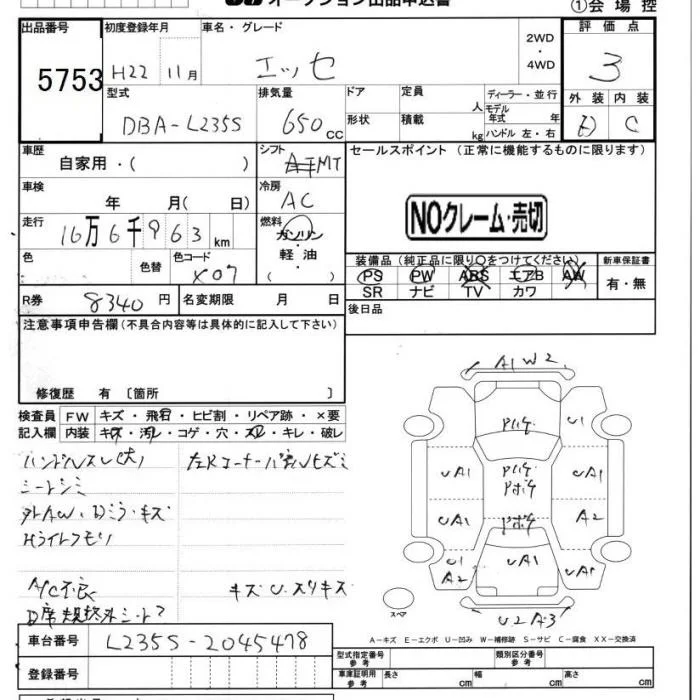 オークション出品申込書
①会場控
出品番号
5753
初度登録年月
H22 11月
車名・グレード
エッセ
2WD
・
4WD
評価点
3
型式
DBA-L235S
排気量
650 cc
ドア
形状
定員 人
積載 kg
ディーラー・並行
モデル年式 年
ハンドル 左・右
外装 内装
C
車歴
自家用・( )
シフト
MT
セールスポイント (正常に機能するものに限ります)
車検
年 月( 日)
冷房
AC
NOクレーム・売切
走行
16万6千963 km
燃料
ガソリン
・
軽油
( )
色
色替
色コード
X07
装備品 (純正品に限り○をつけてください)
新車保証書
PS PW ABS エアB AW
SR ナビ TV カワ
有・無
R券 8340円
名変期限 月 日
後日品
注意事項申告欄(不具合内容等は具体的に記入して下さい)
修復歴 有 〔箇所 〕
検査員
記入欄
FW キズ・飛石・ヒビ割・リペア跡・×要
内装 キズ・汚レ・コゲ・穴・スレ・キレ・破レ
ハンドルスレ(大)
シートシミ
外AW、Dミラーキズ
Hライトクモリ
A/C不良
キズ U スリキズ
A1 W2
U1
UA1 UA1
UA1 A2
U1
A2
UA1
UA1
U2 A3
スペア
車台番号 L235S-2045478
登録番号
A-キズ E-エクボ U-凹み W-補修跡 S-サビ C-腐食 XX-交換済
型式指定番号
参考
類別区分番号
参考
車庫証明用
参考
長さ cm 幅 cm 高さ cm